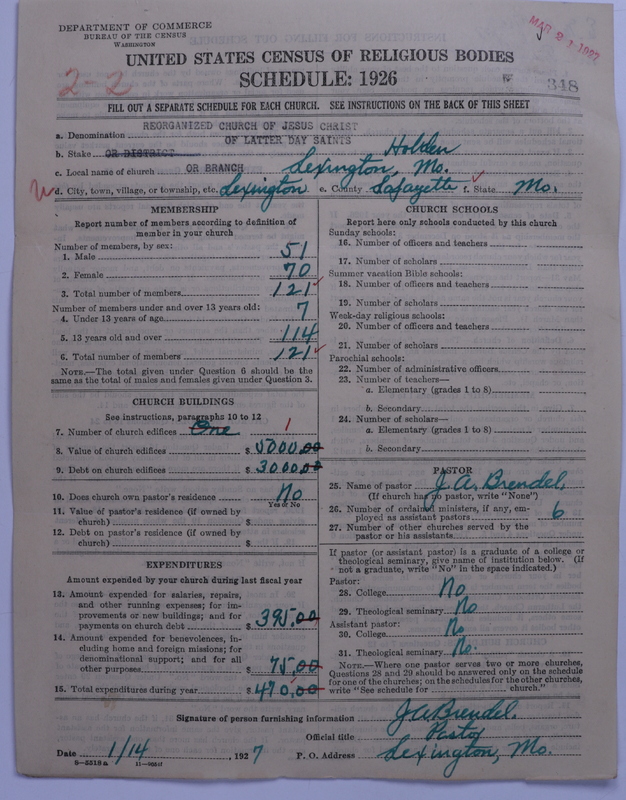 DEPARTMENT OF COMMERCE
BUREAU OF THE CENSUS
WASHINGTON
MAR 21 1927
UNITED STATES CENSUS OF RELIGIOUS BODIES
2-2
SCHEDULE: 1926
348
FILL OUT A SEPARATE SCHEDULE FOR EACH CHURCH. SEE INSTRUCTIONS ON THE BACK OF THIS SHEET
a. Denomination REORGANIZED CHURCH OF JESUS CHRIST
OF LATTER DAY SAINTS
b. Stake OR DISTRICT Holden
c. Local name of church OR BRANCH Lexington, Mo.
d. City, town, village, or township, etc. Lexington e. County Lafayette f. State Mo.
MEMBERSHIP
Report number of members according to definition of member in your church
Number of members, by sex:
1. Male 51
2. Female 70
3. Total number of members 121
Number of members under and over 13 years old:
4. Under 13 years of age 7
5. 13 years old and over 114
6. Total number of members 121
NOTE.—The total given under Question 6 should be
same as the total of males and females given under Question 3.
CHURCH BUILDINGS
See instructions, paragraphs 10 to 12
7. Number of church edifices One 1
8. Value of church edifices $ 5000.00
9. Debt on church edifices $ 3000.00
10. Does church own pastor's residence No
Yes or No
11. Value of pastor's residence (if owned by
church) $
12. Debt on pastor's residence (if owned by
church) $
EXPENDITURES
Amount expended by your church during last fiscal year
13. Amount expended for salaries, repairs,
and other running expenses; for im-
provements or new buildings; and for
payments on church debt $ 395.00
14. Amount expended for benevolences, in-
cluding home and foreign missions; for
denominational support; and for all
other purposes $ 75.00
15. Total expenditures during year $ 470.00
CHURCH SCHOOLS
Report here only schools conducted by this church
Sunday schools:
16. Number of officers and teachers
17. Number of scholars
Summer vacation Bible schools:
18. Number of officers and teachers
19. Number of scholars
Week-day religious schools:
20. Number of officers and teachers
21. Number of scholars
Parochial schools:
22. Number of administrative officers
23. Number of teachers—
a. Elementary (grades 1 to 8)
b. Secondary
24. Number of scholars—
a. Elementary (grades 1 to 8)
b. Secondary
PASTOR
25. Name of pastor J. A. Brendel.
(If church has no pastor, write "None")
26. Number of ordained ministers, if any, em-
ployed as assistant pastors 6
27. Number of other churches served by the
pastor or his assistants
If pastor (or assistant pastor) is a graduate of a college or
theological seminary, give name of institution below. (If
not a graduate, write "No" in the space indicated.)
Pastor:
28. College No
29. Theological seminary No
Assistant pastor:
30. College No
31. Theological seminary No.
NOTE.—Where one pastor serves two or more churches,
Questions 28 and 29 should be answered only on the schedule
for one of the churches; on the schedules for the other churches,
write "See schedule for church."
Signature of person furnishing information J A Brendel.
Official title Pastor
Date 1/14, 1927 P. O. Address Lexington, Mo.
8-5519a